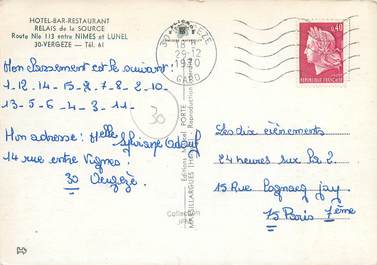 HOTEL-BAR-RESTAURANT
RELAIS de la SOURCE
Route Nle 113 entre NIMES et LUNEL
30-VERGEZE — Tél. 61
30 VERGEZE
18 H
29-12
1970
GARD
0,40
Mon classement est le suivant:
1-12-14-15-8-7-8-2-10-
13-5-6-4-3-11-
30
Mon adresse: Melle Sylviane
14 rue entre Vignes
30 Vergèze
Les dix évènements
24 heures sur la 2
15 Rue Cognacq Jay
75 Paris 7ème
PORTE
MARSILLARGUES
Reproduction
Editions
Collection